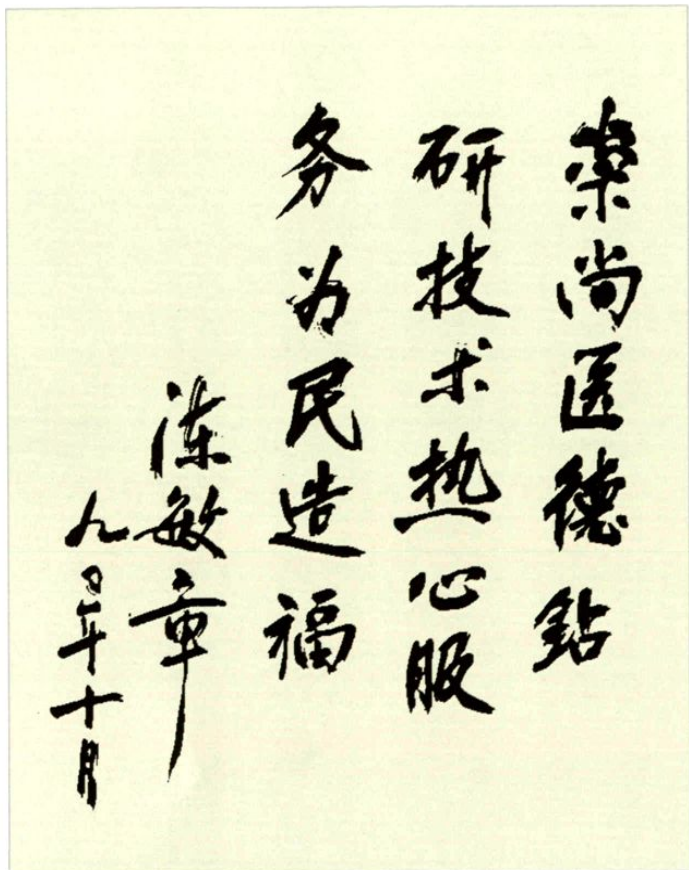 崇尚医德钻
研技术热心服
务为民造福
陈敏章
九〇年十月